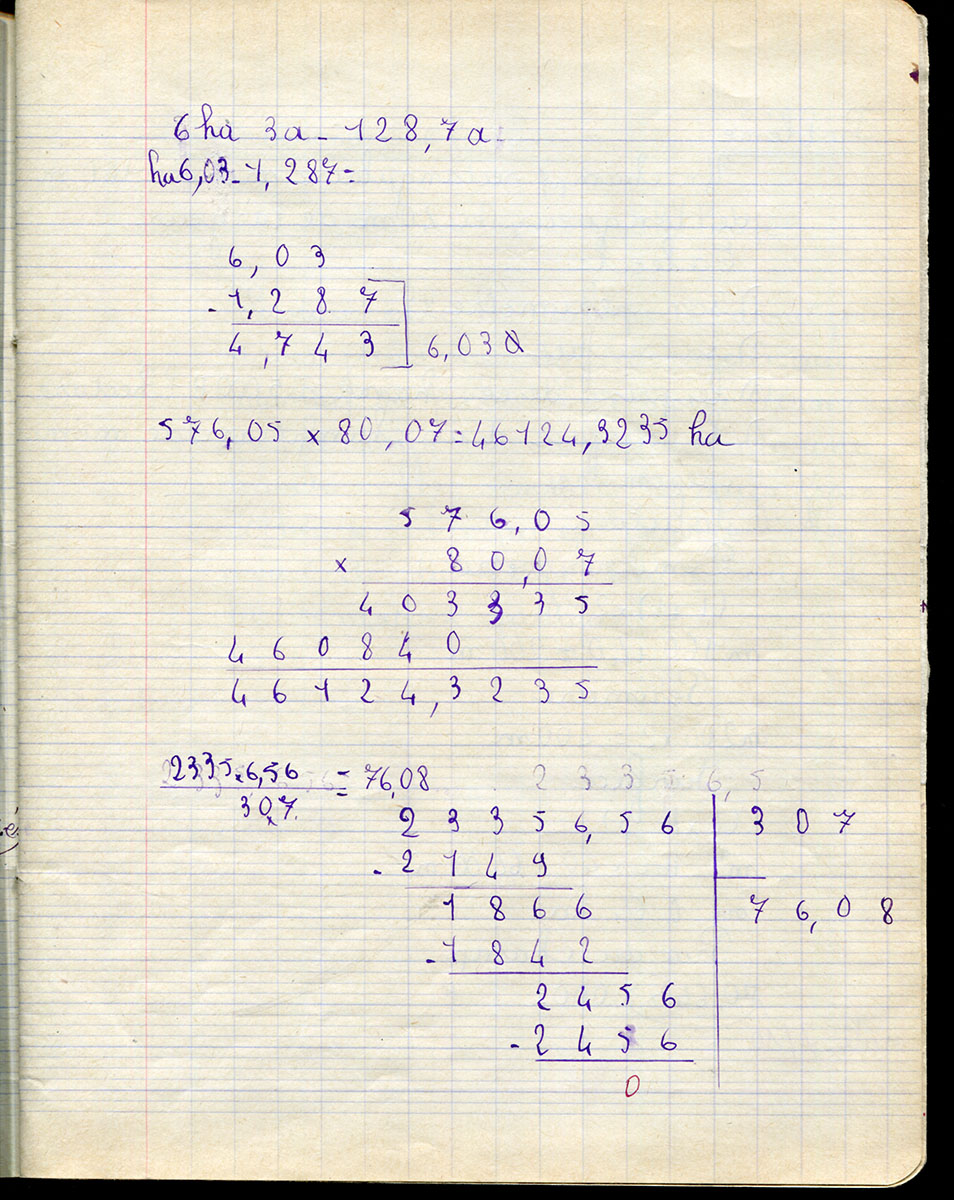 6 ha 3a - 128,7 a
ha 6,03 - 1,287 =
6,03
- 1,287
4,743 6,03 a
576,05 x 80,07 = 46124,3235 ha
576,05
x 80,07
403335
460840
46124,3235
2335.6,56 = 76,08
30,7
2 3 3 5 6,5
23356,56 307
- 2149
1866 76,08
- 1842
2456
- 2456
0